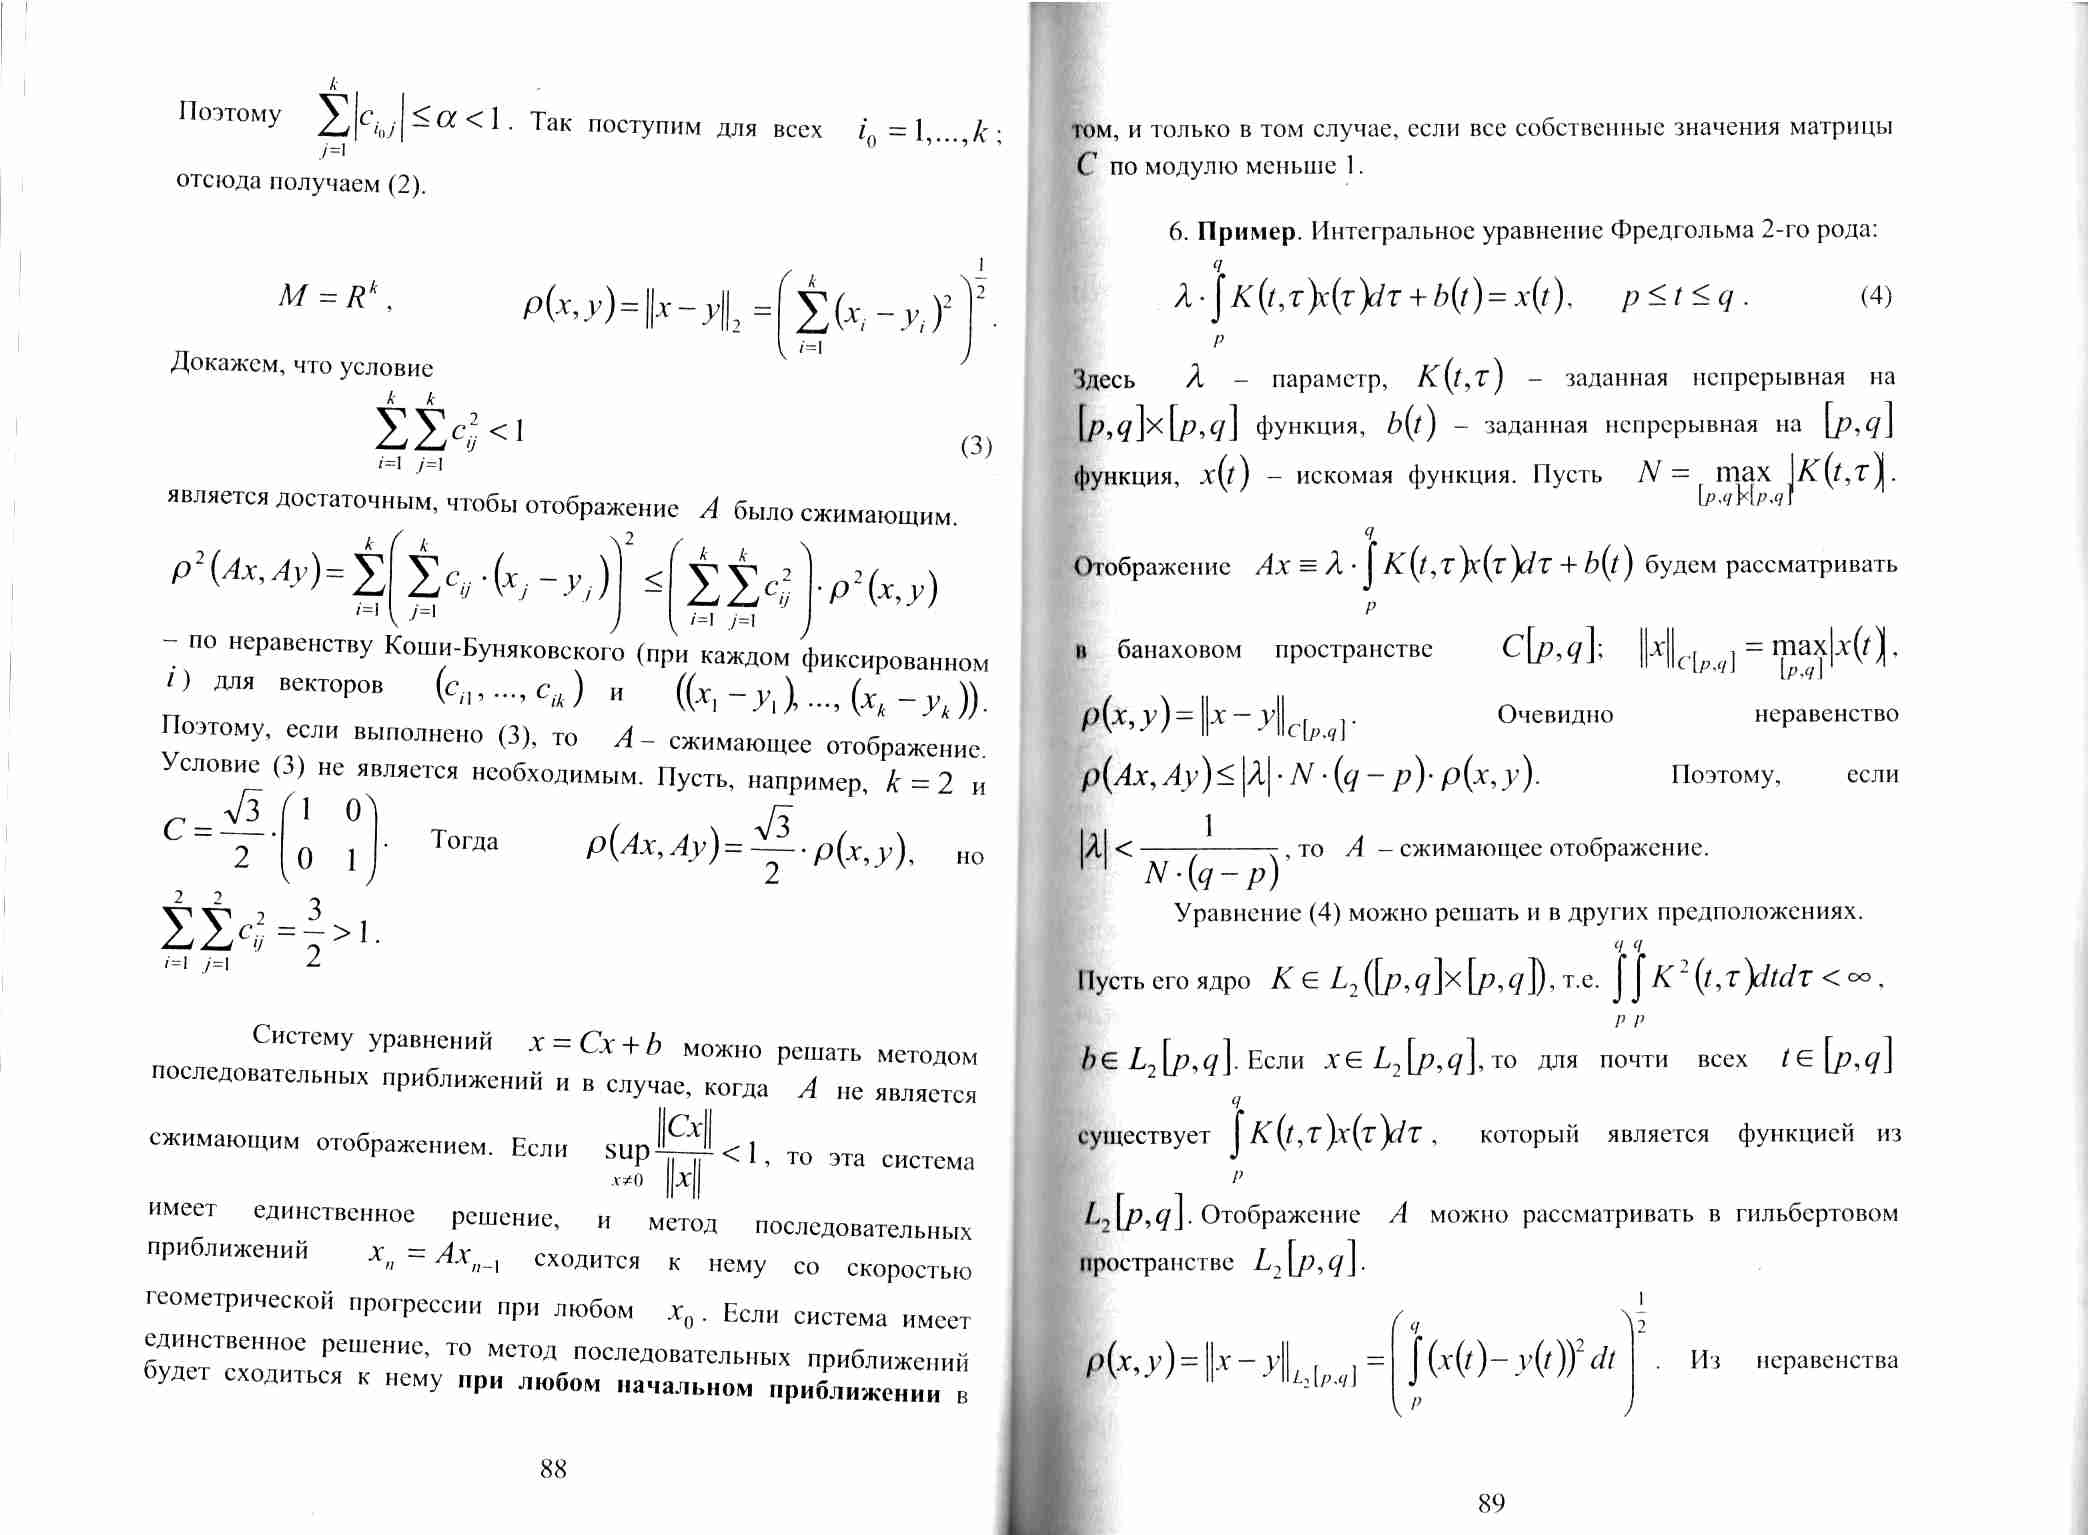 Поэтому $\sum_{j=1}^{k}|c_{i_0 j}| \le \alpha < 1$. Так поступим для всех $i_0 = 1,...,k$;
отсюда получаем (2).
$M = R^k$, $\rho(x,y) = \|x-y\|_2 = \left(\sum_{i=1}^{k}(x_i - y_i)^2\right)^{\frac{1}{2}}$.
Докажем, что условие
$\sum_{i=1}^{k}\sum_{j=1}^{k} c_{ij}^2 < 1$ (3)
является достаточным, чтобы отображение $A$ было сжимающим.
$\rho^2(Ax, Ay) = \sum_{i=1}^{k}\left(\sum_{j=1}^{k} c_{ij} \cdot (x_j - y_j)\right)^2 \le \left(\sum_{i=1}^{k}\sum_{j=1}^{k} c_{ij}^2\right) \cdot \rho^2(x,y)$
– по неравенству Коши-Буняковского (при каждом фиксированном
$i$) для векторов $(c_{i1}, ..., c_{ik})$ и $((x_1 - y_1), ..., (x_k - y_k))$.
Поэтому, если выполнено (3), то $A$ – сжимающее отображение.
Условие (3) не является необходимым. Пусть, например, $k = 2$ и
$C = \frac{\sqrt{3}}{2} \cdot \begin{pmatrix} 1 & 0 \\ 0 & 1 \end{pmatrix}$. Тогда $\rho(Ax, Ay) = \frac{\sqrt{3}}{2} \cdot \rho(x,y)$, но
$\sum_{i=1}^{2}\sum_{j=1}^{2} c_{ij}^2 = \frac{3}{2} > 1$.
Систему уравнений $x = Cx + b$ можно решать методом
последовательных приближений и в случае, когда $A$ не является
сжимающим отображением. Если $\sup_{x \ne 0} \frac{\|Cx\|}{\|x\|} < 1$, то эта система
имеет единственное решение, и метод последовательных
приближений $x_n = Ax_{n-1}$ сходится к нему со скоростью
геометрической прогрессии при любом $x_0$. Если система имеет
единственное решение, то метод последовательных приближений
будет сходиться к нему при любом начальном приближении в
88
том, и только в том случае, если все собственные значения матрицы
$C$ по модулю меньше 1.
6. Пример. Интегральное уравнение Фредгольма 2-го рода:
$\lambda \cdot \int_p^q K(t,\tau)x(\tau)d\tau + b(t) = x(t), \quad p \le t \le q.$ (4)
Здесь $\lambda$ – параметр, $K(t,\tau)$ – заданная непрерывная на
$[p,q]\times[p,q]$ функция, $b(t)$ – заданная непрерывная на $[p,q]$
функция, $x(t)$ – искомая функция. Пусть $N = \max_{[p,q]\times[p,q]} |K(t,\tau)|$.
Отображение $Ax \equiv \lambda \cdot \int_p^q K(t,\tau)x(\tau)d\tau + b(t)$ будем рассматривать
в банаховом пространстве $C[p,q]$; $\|x\|_{C[p,q]} = \max_{[p,q]} |x(t)|$,
$\rho(x,y) = \|x-y\|_{C[p,q]}$. Очевидно неравенство
$\rho(Ax, Ay) \le |\lambda| \cdot N \cdot (q-p) \cdot \rho(x,y)$. Поэтому, если
$|\lambda| < \frac{1}{N \cdot (q-p)}$, то $A$ – сжимающее отображение.
Уравнение (4) можно решать и в других предположениях.
Пусть его ядро $K \in L_2([p,q]\times[p,q])$, т.е. $\int_p^q\int_p^q K^2(t,\tau)dtd\tau < \infty$,
$b \in L_2[p,q]$. Если $x \in L_2[p,q]$, то для почти всех $t \in [p,q]$
существует $\int_p^q K(t,\tau)x(\tau)d\tau$, который является функцией из
$L_2[p,q]$. Отображение $A$ можно рассматривать в гильбертовом
пространстве $L_2[p,q]$.
$\rho(x,y) = \|x-y\|_{L_2[p,q]} = \left(\int_p^q (x(t)-y(t))^2 dt\right)^{\frac{1}{2}}$. Из неравенства
89